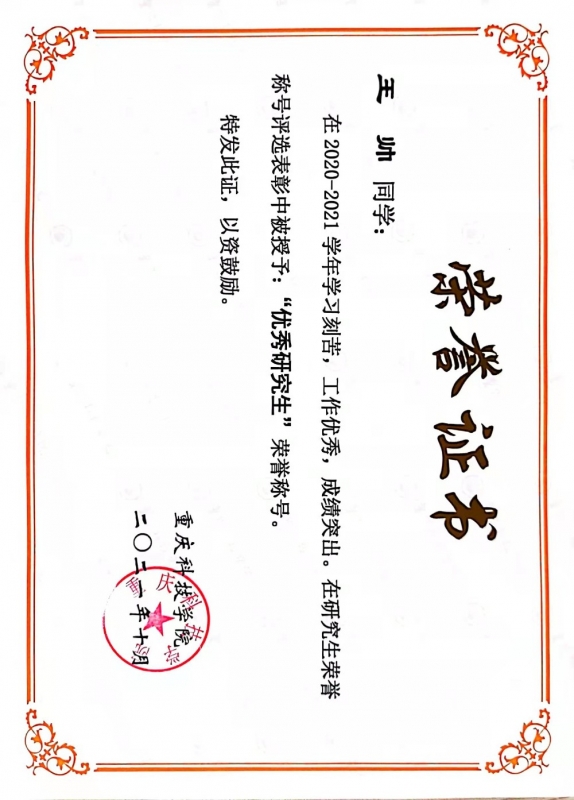 荣誉证书
王 帅 同学：
在2020-2021学年学习刻苦，工作优秀，成绩突出。在研究生荣誉
称号评选表彰中被授予：“优秀研究生”荣誉称号。
特发此证，以资鼓励。
重庆科技学院
二〇二一年十月
重庆科技学院